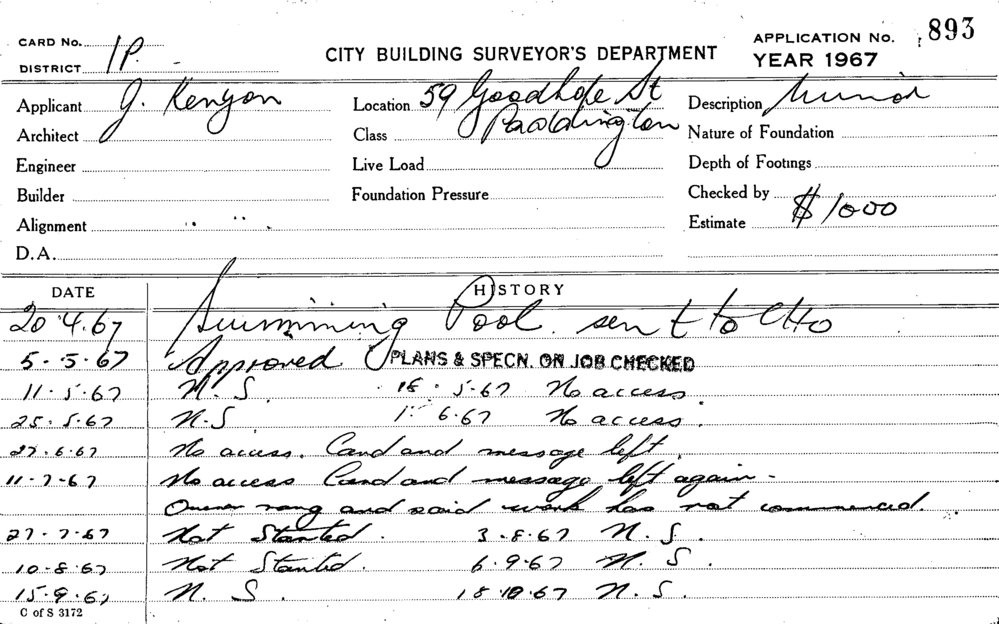 CARD No. 1P.
DISTRICT
CITY BUILDING SURVEYOR'S DEPARTMENT
APPLICATION No. 893
YEAR 1967
Applicant J. Kenyon
Location 59 Goodhope St
Paddington
Description Minor
Architect
Class
Nature of Foundation
Engineer
Live Load
Depth of Footings
Builder
Foundation Pressure
Checked by
Alignment
Estimate $1000
D.A.
DATE HISTORY
20.4.67 Swimming Pool. sent to CHO
5.5.67 Approved PLANS & SPECN. ON JOB CHECKED
11.5.67 N.S. 18.5.67 No access.
25.5.67 N.S 1.6.67 No access.
27.6.67 No access. Card and message left.
11-7-67 No access Card and message left again -
Owner rang and said work has not commenced.
27.7.67 Not Started. 3.8.67 N.S.
10.8.67 Not Started. 6.9.67 N.S.
15.9.67 N. S. 18.10.67 N.S.
C of S 3172